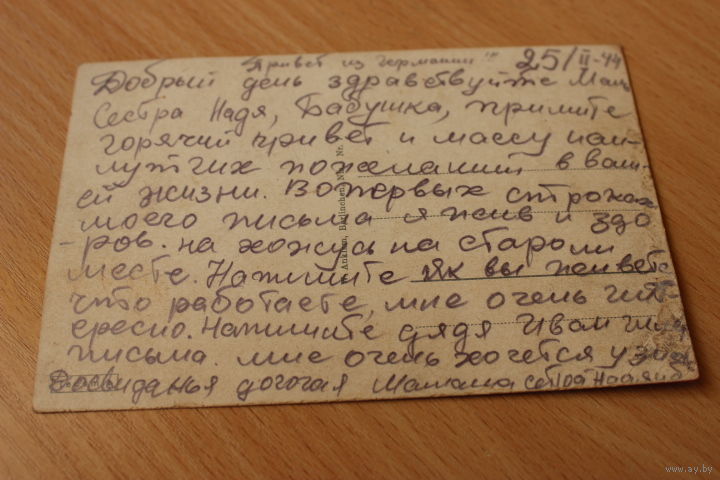 Привет из германии !!! 25/II-44
Добрый день здравствуйте Мама
Сестра Надя, Бабушка, примите
горячий привет и массу наи-
лутших пожеланий в ваш-
ей жизни. Вопервых строках
моего письма я жив и здо
-ров. на хожусь на старом
месте. Напишите як вы живете
что работаете, мне очень инт-
ересно. Напишите дядя Иван
письма. мне очень хочется
Досвиданья догогая Мамаша сестра Надя
Anklam, Bärlinchen, Nr.
www.ay.by